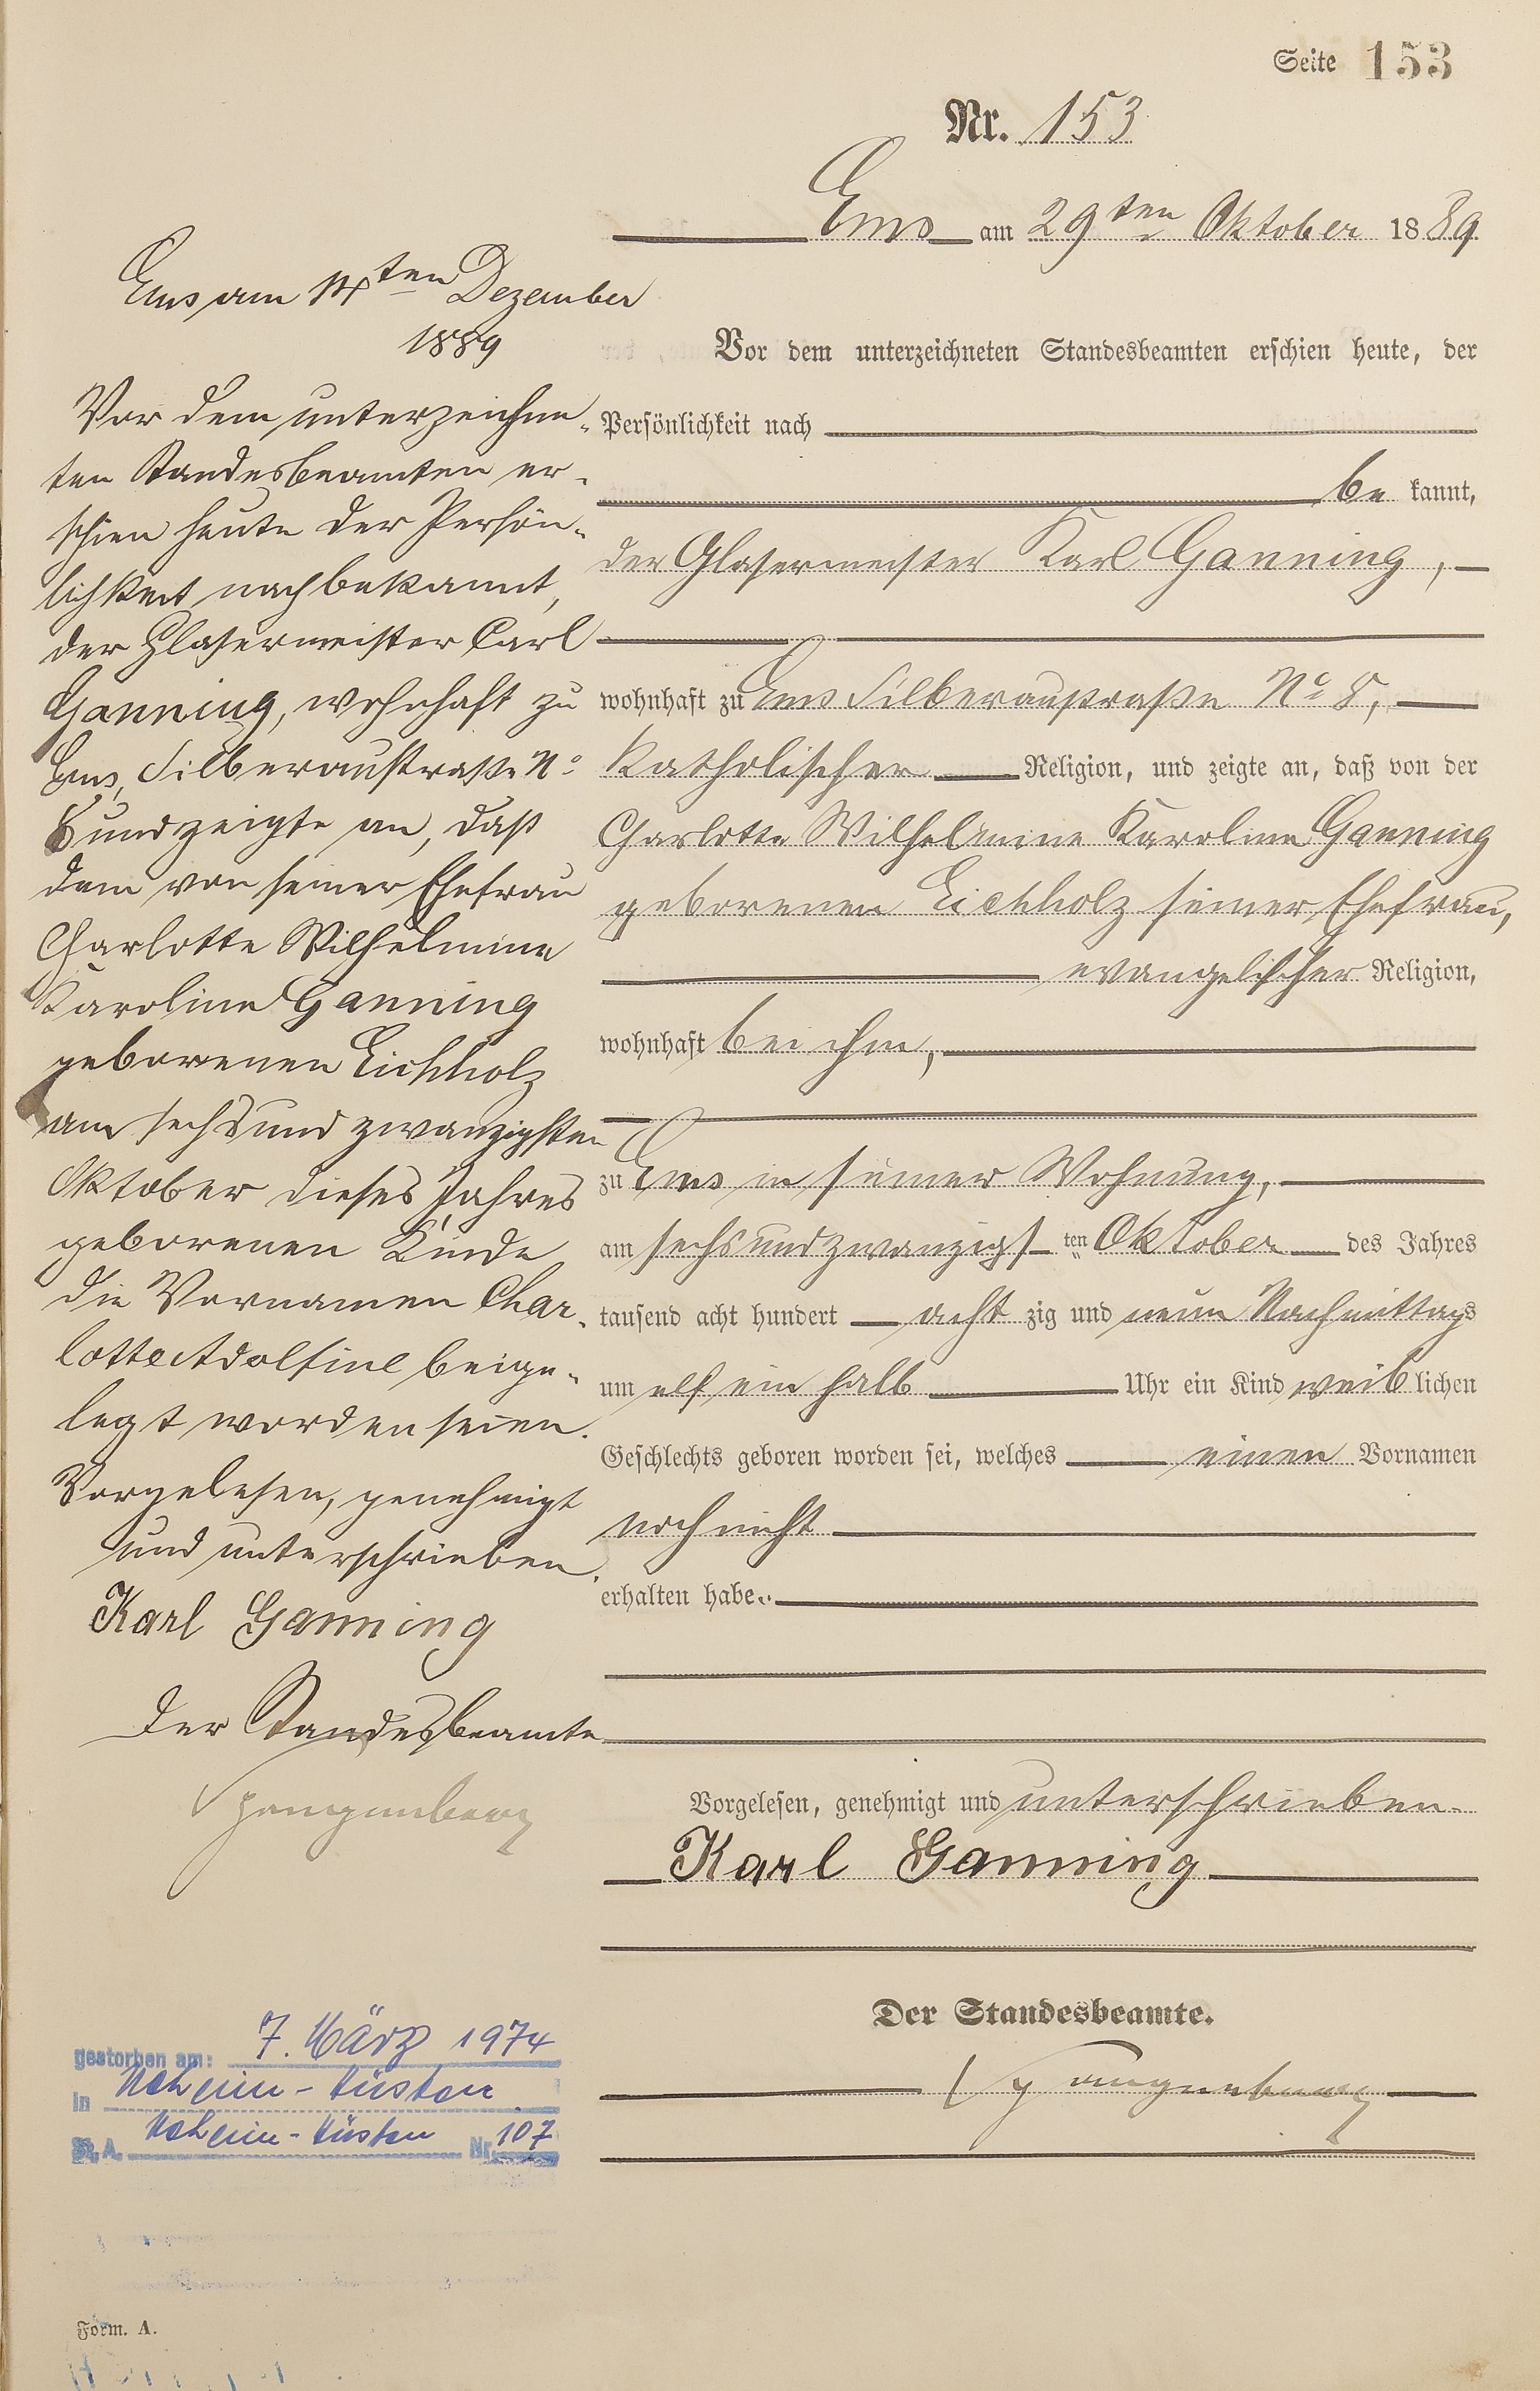 Seite 153
Nr. 153
Ems am 29ten Oktober 1889
Vor dem unterzeichneten Standesbeamten erschien heute, der
Persönlichkeit nach
be kannt,
der Glasermeister Karl Ganning,
wohnhaft zu Ems Silberaustraße No 8,
katholischer Religion, und zeigte an, daß von der
Charlotte Wilhelmine Karoline Ganning
geborenen Eichholz seiner Ehefrau,
evangelischer Religion,
wohnhaft bei ihm,
zu Ems in seiner Wohnung,
am sechsundzwanzigsten Oktober des Jahres
tausend acht hundert achtzig und neun Nachmittags
um elf ein halb Uhr ein Kind weiblichen
Geschlechts geboren worden sei, welches einen Vornamen
noch nicht
erhalten habe.
Vorgelesen, genehmigt und unterschrieben.
Karl Ganning
Der Standesbeamte.
Spangenberg
Ems am 14ten Dezember
1889
Vor dem unterzeichne-
ten Standesbeamten er-
schien heute der Persön-
lichkeit nach bekannt,
der Glasermeister Carl
Ganning, wohnhaft zu
Ems, Silberaustraße No
8 und zeigte an, daß
dem von seiner Ehefrau
Charlotte Wilhelmine
Karoline Ganning
geborenen Eichholz
am sechsundzwanzigsten
Oktober dieses Jahres
geborenen Kinde
die Vornamen Char-
lotte Adolfine beige-
legt worden seien.
Vorgelesen, genehmigt
und unterschrieben.
Karl Ganning
Der Standesbeamte
Spangenberg
gestorben am: 7. März 1974
in Neheim-Hüsten
St. A. Neheim-Hüsten Nr. 107
Form. A.